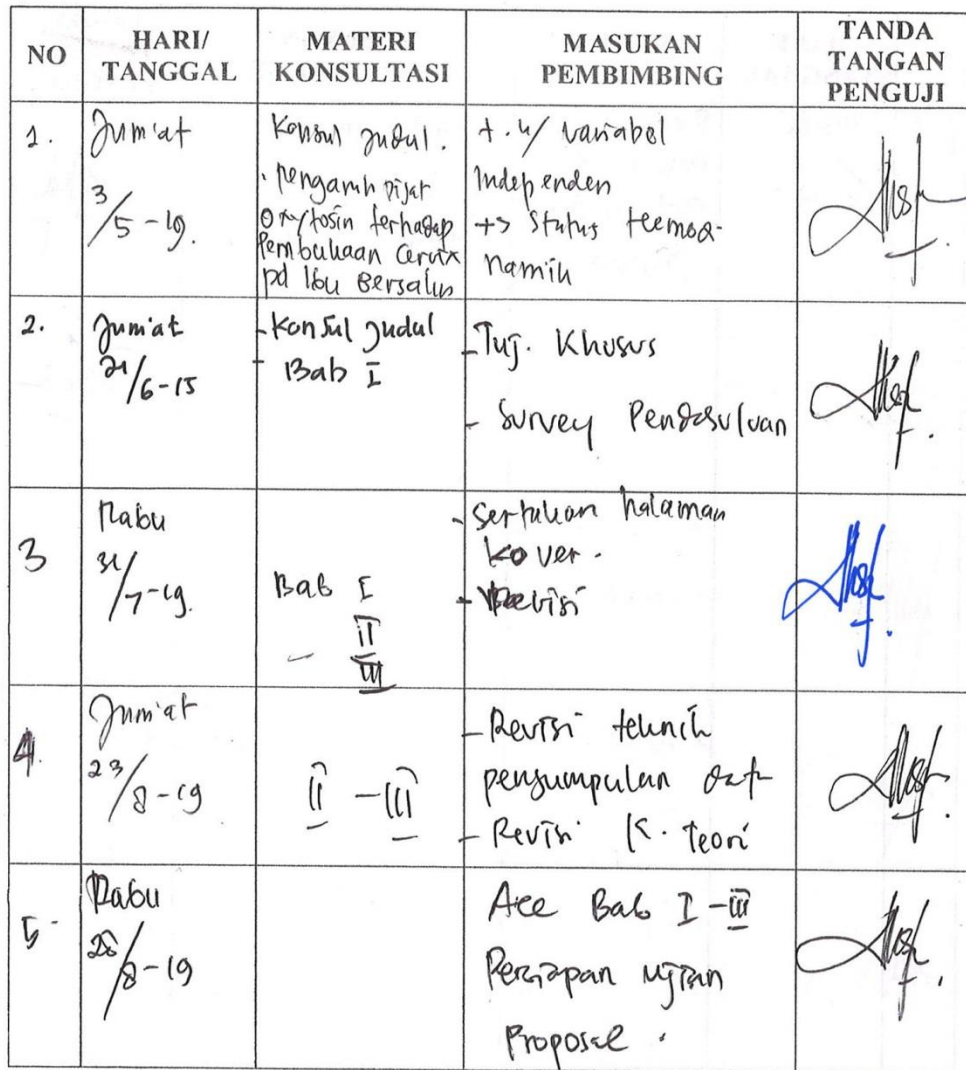 NO
HARI/
TANGGAL
MATERI
KONSULTASI
MASUKAN
PEMBIMBING
TANDA
TANGAN
PENGUJI
1.
Jum'at
3/5-19.
Konsul Judul.
. pengaruh pijat
Oxytosin terhadap
Pembukaan Cervix
pd Ibu Bersalin
+. u/ variabel
Independen
+> Status Heemodi-
namik
2.
Jum'at
21/6-15
- Konsul Judul
- Bab I
- Tuj. Khusus
- Survey Pendahuluan
3
Rabu
31/7-19.
Bab I
II
III
- Sertakan halaman
kover.
- Revisi
4.
Jum'at
23/8-19
II - III
- Revisi teknik
pengumpulan data
- Revisi K. Teori
5
Rabu
28/8-19
Acc Bab I - III
Persiapan ujian
Proposal.